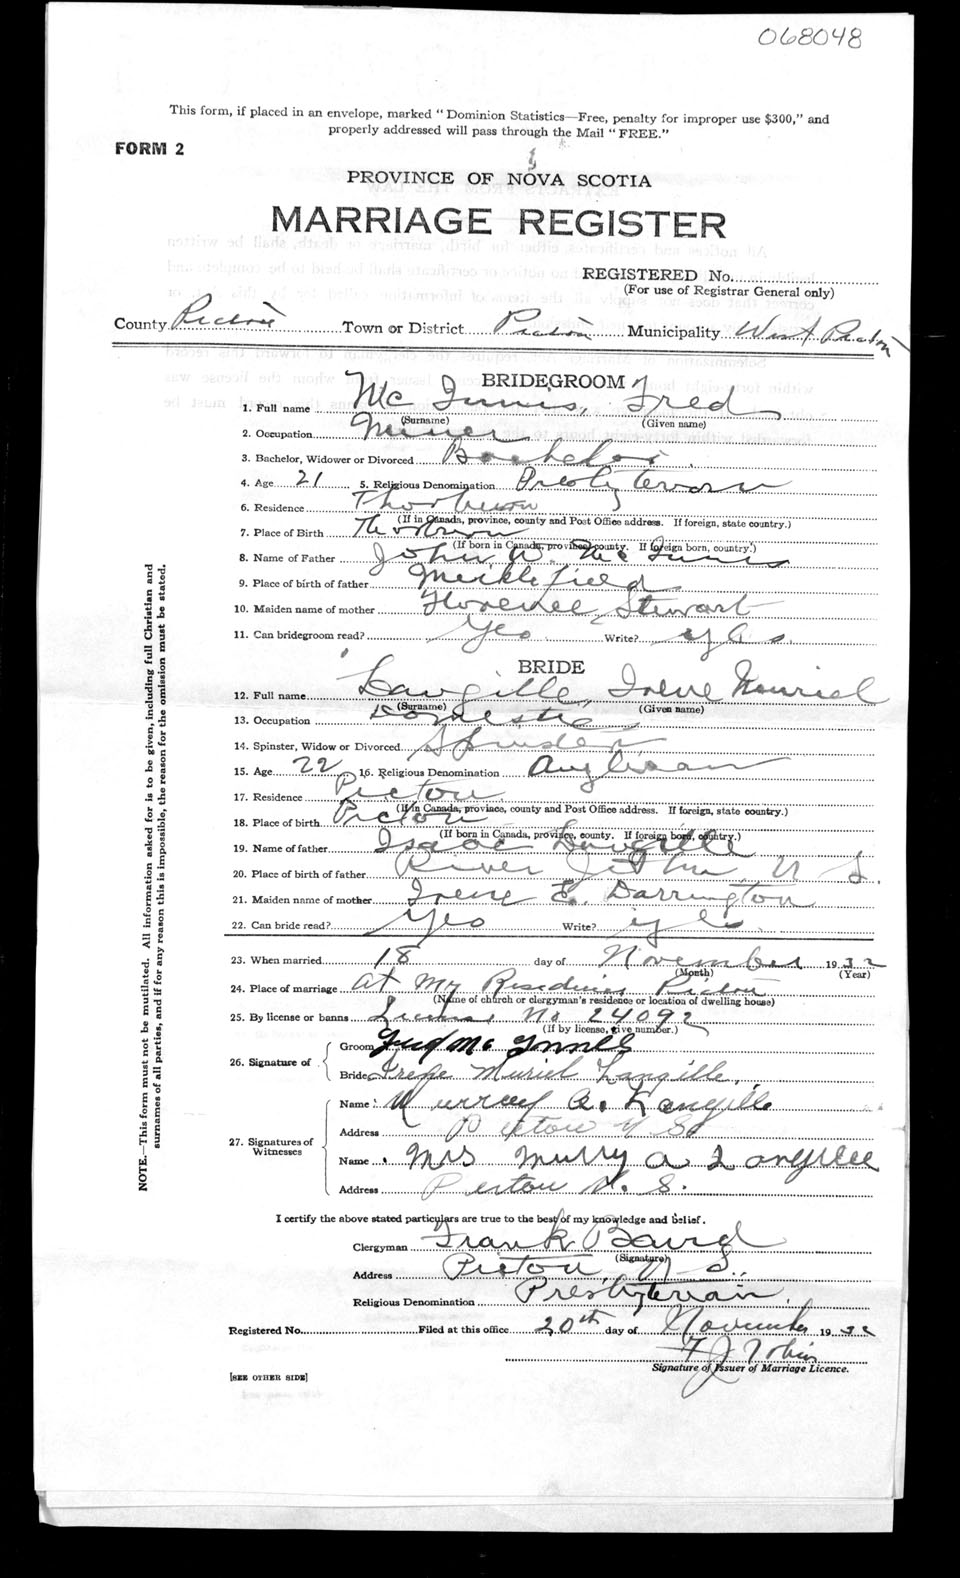 068048
This form, if placed in an envelope, marked "Dominion Statistics—Free, penalty for improper use $300," and
properly addressed will pass through the Mail "FREE."
FORM 2
PROVINCE OF NOVA SCOTIA
MARRIAGE REGISTER
REGISTERED No.
(For use of Registrar General only)
County Pictou Town or District Pictou Municipality West Pictou
BRIDEGROOM
1. Full name Mc Innis, Fred
(Surname) (Given name)
2. Occupation Miner
3. Bachelor, Widower or Divorced Bachelor
4. Age 21 5. Religious Denomination Presbyterian
6. Residence Thorburn
(If in Canada, province, county and Post Office address. If foreign, state country.)
7. Place of Birth Thorburn
(If born in Canada, province, county. If foreign born, country.)
8. Name of Father John W. Mc Innis
9. Place of birth of father Meiklefield
10. Maiden name of mother Florence Stewart
11. Can bridegroom read? Yes Write? yes
BRIDE
12. Full name Langille, Irene Muriel
(Surname) (Given name)
13. Occupation Domestic
14. Spinster, Widow or Divorced Spinster
15. Age 22 16. Religious Denomination Anglican
17. Residence Pictou
(If in Canada, province, county and Post Office address. If foreign, state country.)
18. Place of birth Pictou
(If born in Canada, province, county. If foreign born, country.)
19. Name of father Isaac Langille
20. Place of birth of father River John, N S.
21. Maiden name of mother Irene E. Darrington
22. Can bride read? Yes Write? yes
23. When married 18 day of November 1932
(Month) (Year)
24. Place of marriage at My Residence Pictou
(Name of church or clergyman's residence or location of dwelling house)
25. By license or banns License No 24092
(If by license, give number.)
26. Signature of
Groom Fred Mc Innes
Bride Irene Muriel Langille.
27. Signatures of Witnesses
Name Murray A. Langille
Address Pictou N S.
Name Mrs Murry A Langille
Address Pictou N. S.
I certify the above stated particulars are true to the best of my knowledge and belief.
Clergyman Frank Baird
(Signature)
Address Pictou, N. S.,
Religious Denomination Presbyterian.
Registered No. Filed at this office 20th day of November 1932
F J Tobin
Signature of Issuer of Marriage Licence.
[SEE OTHER SIDE]
NOTE.—This form must not be mutilated. All information asked for is to be given, including full Christian and
surnames of all parties, and if for any reason this is impossible, the reason for the omission must be stated.